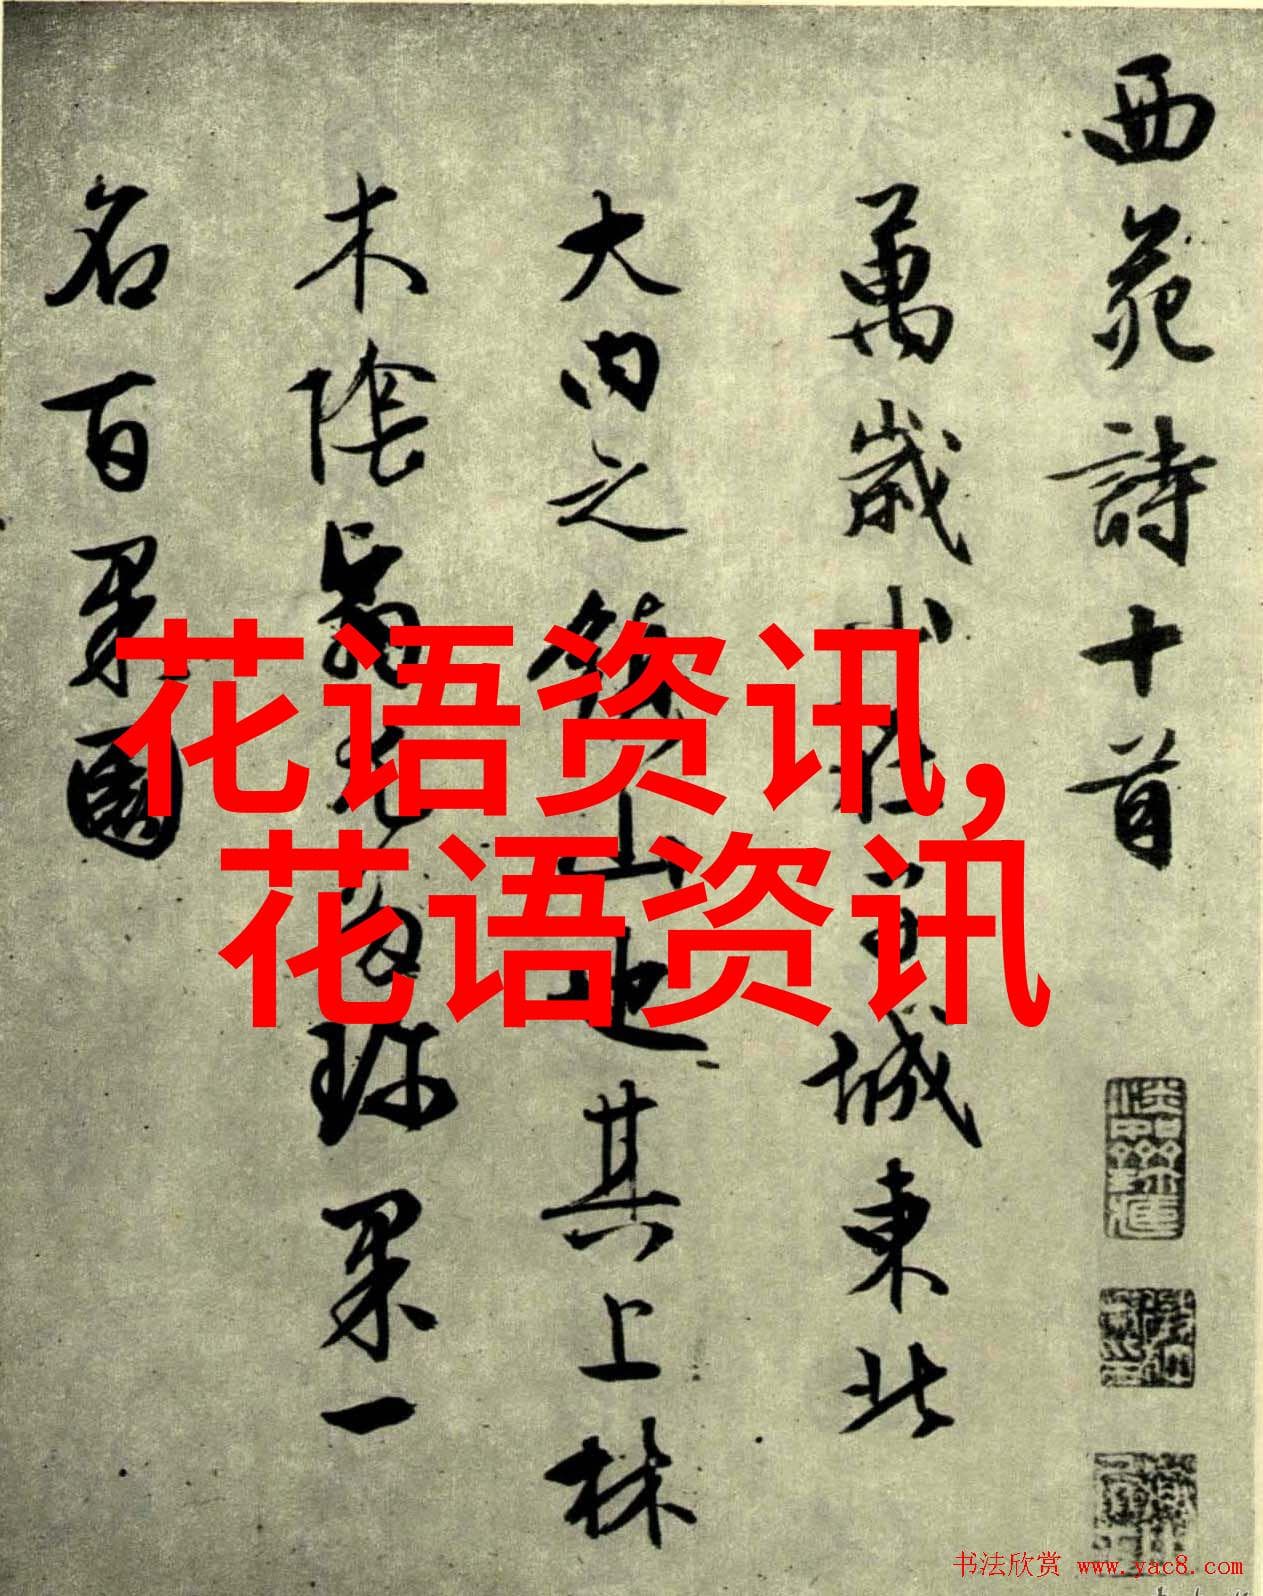 西苑詩十首
萬歲山在城東北
大内之鎮山也其上林
木陰翳尤多珍果一
名百果園
花语资讯,
花语资讯
书法欣赏 www.yac8.com